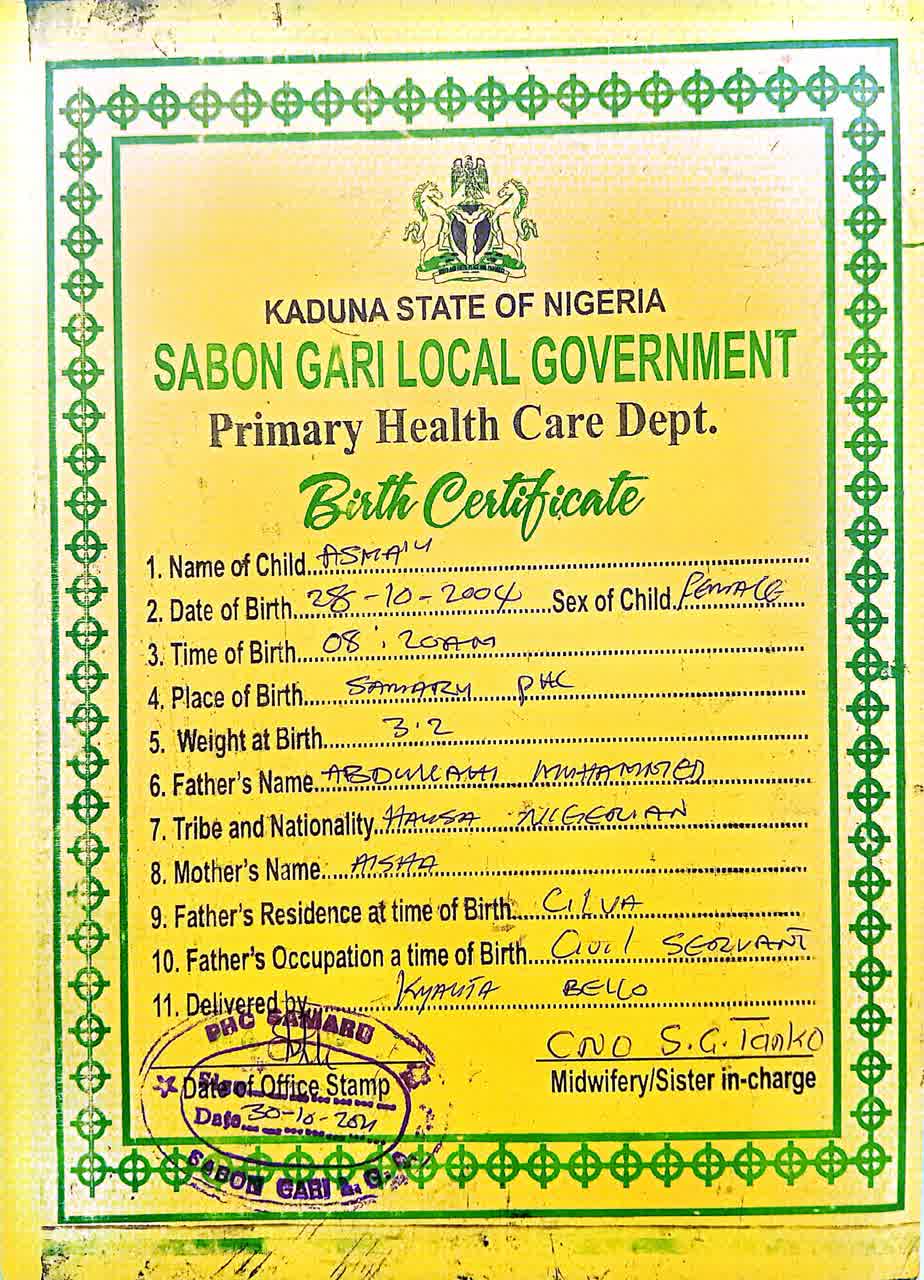 KADUNA STATE OF NIGERIA
SABON GARI LOCAL GOVERNMENT
Primary Health Care Dept.
Birth Certificate
1. Name of Child ASMA'U
2. Date of Birth 28-10-2004 Sex of Child Female
3. Time of Birth 08:20AM
4. Place of Birth SAMARU PHC
5. Weight at Birth 3.2
6. Father's Name ABDULLAHI MUHAMMED
7. Tribe and Nationality HAUSA NIGERIAN
8. Mother's Name AISHA
9. Father's Residence at time of Birth
10. Father's Occupation a time of Birth Civil SERVANT
11. Delivered by BELLO
PHC SAMARU
CNO S.G. Tanko
Date of Office Stamp
Midwifery/Sister in-charge
Sign
Date 30-10-2021
SABON GARI L.G.A